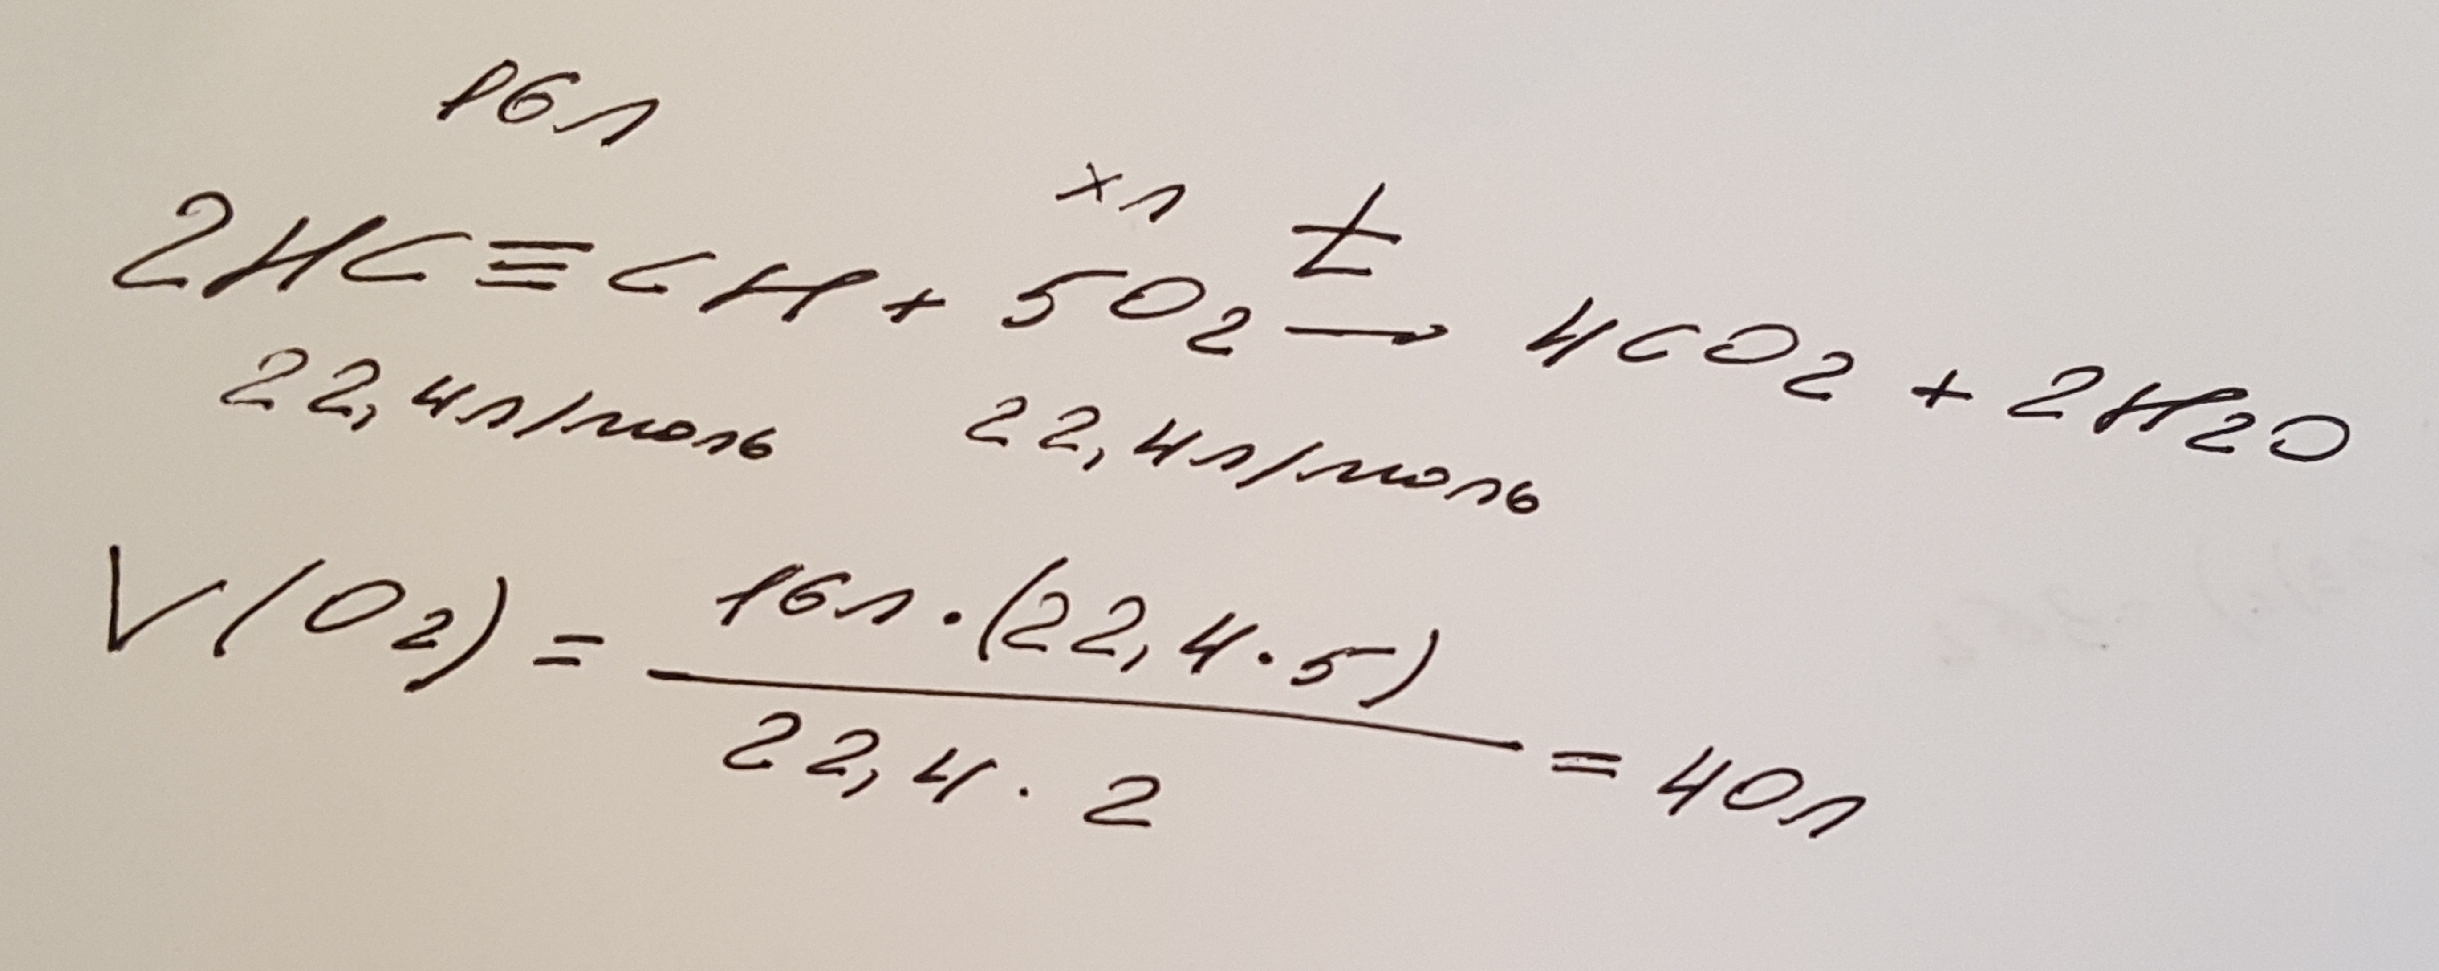 16л
хл t
2HC≡CH + 5O2 → 4CO2 + 2H2O
22,4л/моль 22,4л/моль
V(O2) = 16л·(22,4·5) / 22,4·2 = 40л